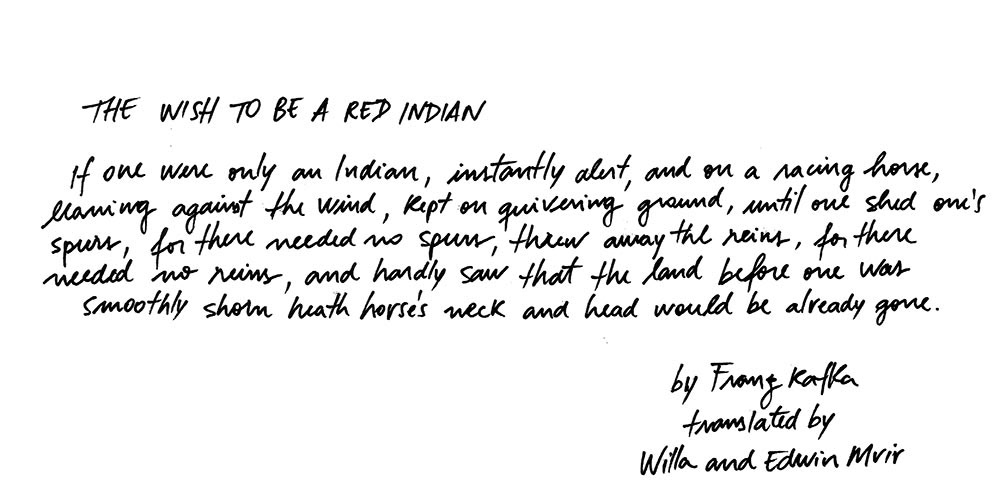 THE WISH TO BE A RED INDIAN
If one were only an Indian, instantly alert, and on a racing horse,
leaning against the wind, kept on quivering ground, until one shed one's
spurs, for there needed no spurs, threw away the reins, for there
needed no reins, and hardly saw that the land before one was
smoothly shorn heath horse's neck and head would be already gone.
by Franz Kafka
translated by
Willa and Edwin Muir